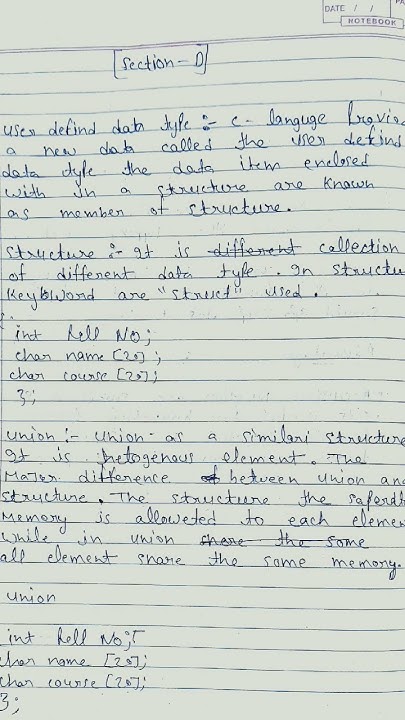 DATE / /
NOTEBOOK
Section - D
user defind data type :- c - languge Provid
a new data called the user defind
data type the data item enclosed
with in a structure are known
as member of structure.
Structure :- It is different callection
of different data type. In structu
Keyword are "struct" used.
int Roll No;
char name [20];
char course [20];
};
union :- union as a similari structure
It is hetogenous element. The
Major difference of between union an
structure. The structure the saferat
Memory is alloweted to each elemen
while in union share the some
all element share the same memory.
union
int Roll No;
char name [20];
char course [20];
};